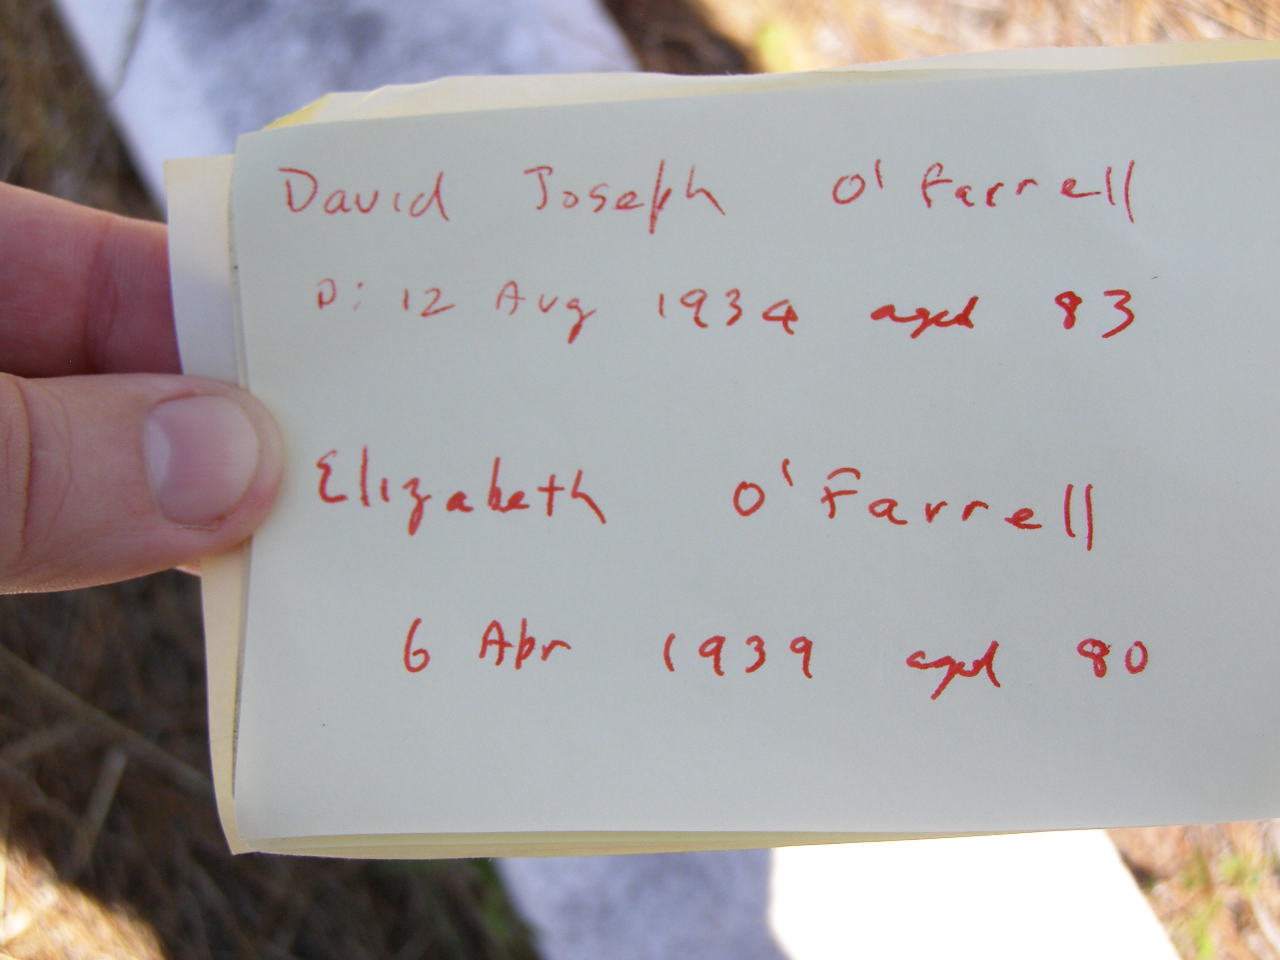 David Joseph O'Farrell
D: 12 Aug 1934 aged 83
Elizabeth O'Farrell
6 Apr 1939 aged 80